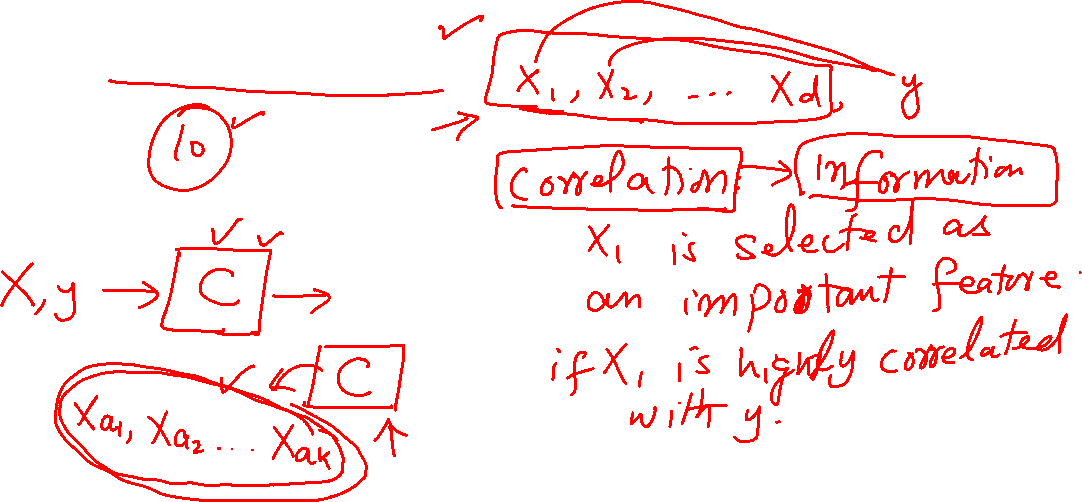 X₁, X₂, ... Xd, y
10
Correlation → Information
X₁ is selected as
an important feature.
if X₁ is highly correlated
with y.
X, y → C →
C
Xa₁, Xa₂ ... Xaₖ